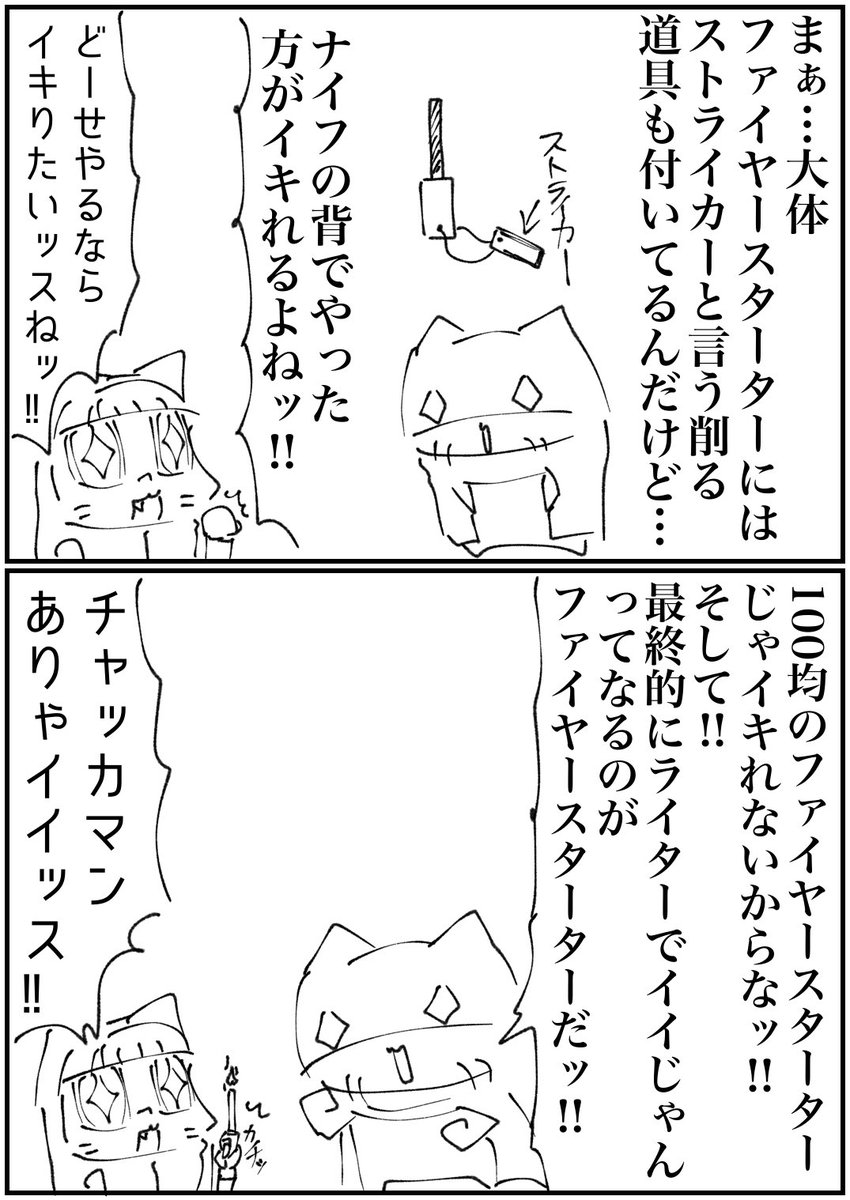 まぁ…大体
ファイヤースターターには
ストライカーと言う削る
道具も付いてるんだけど…
ストライカー
ナイフの背でやった
方がイキれるよねッ!!
どーせやるなら
イキりたいッスねッ!!
100均のファイヤースターター
じゃイキれないからなッ!!
そして!!
最終的にライターでイイじゃん
ってなるのが
ファイヤースターターだッ!!
チャッカマン
ありゃイイッス!!
カチッ